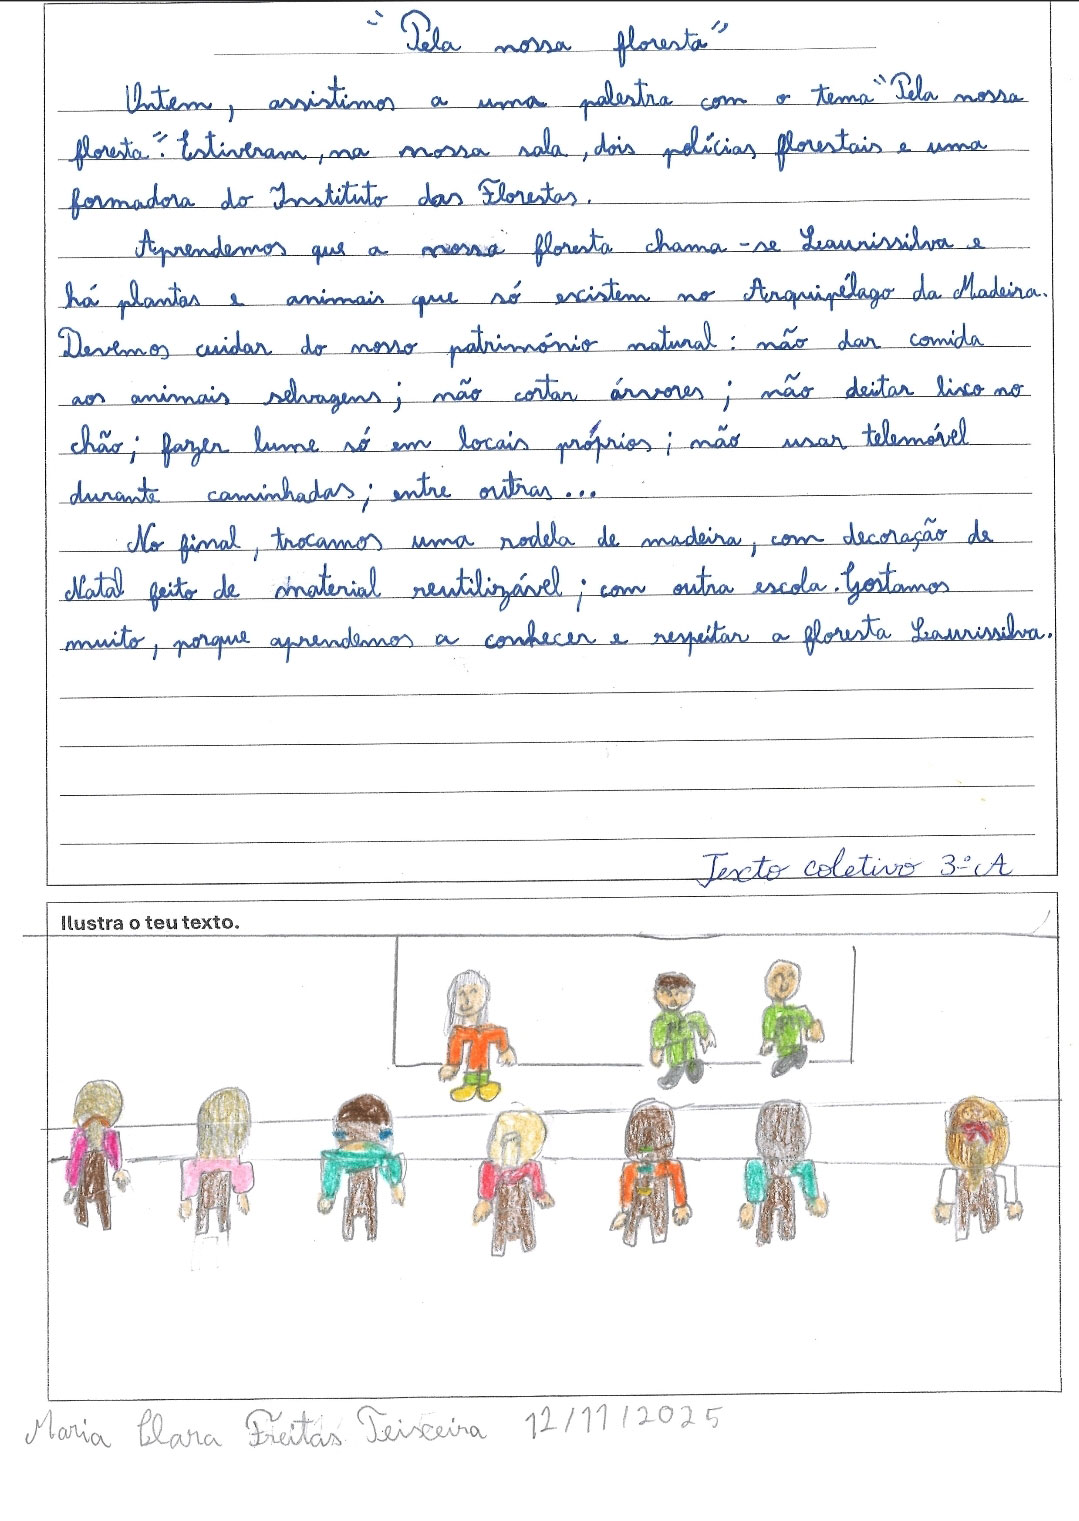 "Pela nossa floresta"
Ontem, assistimos a uma palestra com o tema "Pela nossa
floresta". Estiveram, na nossa sala, dois polícias florestais e uma
formadora do Instituto das Florestas.
Aprendemos que a nossa floresta chama-se Laurissilva e
há plantas e animais que só existem no Arquipélago da Madeira.
Devemos cuidar do nosso património natural: não dar comida
aos animais selvagens; não cortar árvores; não deitar lixo no
chão; fazer lume só em locais próprios; não usar telemóvel
durante caminhadas; entre outras...
No final, trocamos uma rodela de madeira, com decoração de
Natal feito de material reutilizável; com outra escola. Gostamos
muito, porque aprendemos a conhecer e respeitar a floresta Laurissilva.
Texto coletivo 3.º A
Ilustra o teu texto.
Maria Clara Freitas Teixeira 12/11/2025